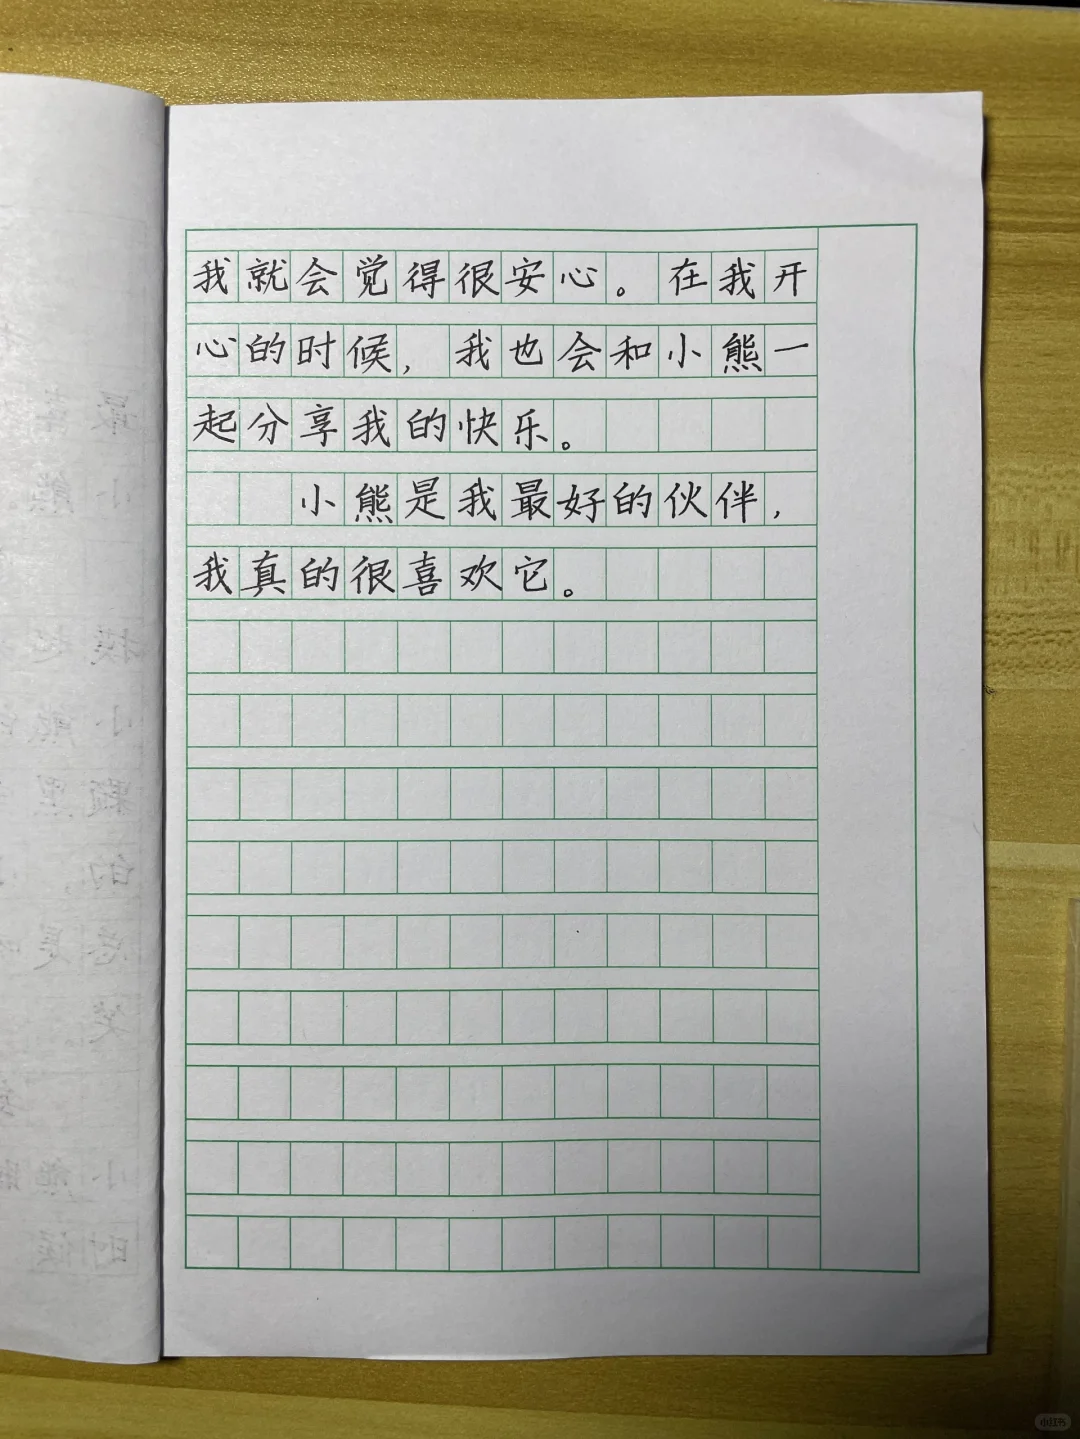 我就会觉得很安心。在我开
心的时候，我也会和小熊一
起分享我的快乐。
小熊是我最好的伙伴，
我真的很喜欢它。
小红书